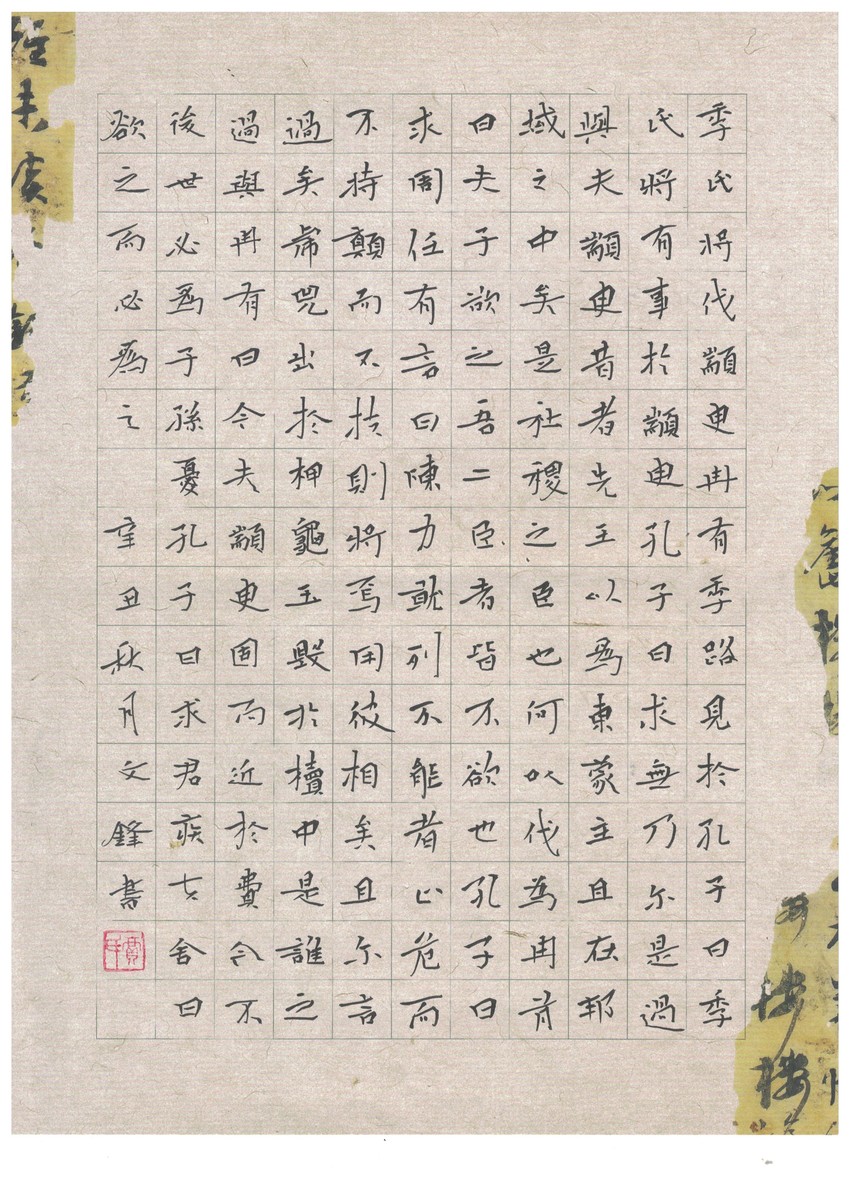 季氏将伐顓臾冉有季路見於孔子曰季
氏将有事於顓臾孔子曰求無乃尔是過
與夫顓臾昔者先王以為東蒙主且在邦
域之中矣是社稷之臣也何以伐為冉有
曰夫子欲之吾二臣者皆不欲也孔子曰
求周任有言曰陳力就列不能者止危而
不持顛而不扶則将焉用彼相矣且尔言
過矣虎兕出於柙龜玉毀於櫝中是誰之
過與冉有曰今夫顓臾固而近於費今不
後世必為子孫憂孔子曰求君疾夫舍曰
欲之而必為之 辛丑秋月文鋒書